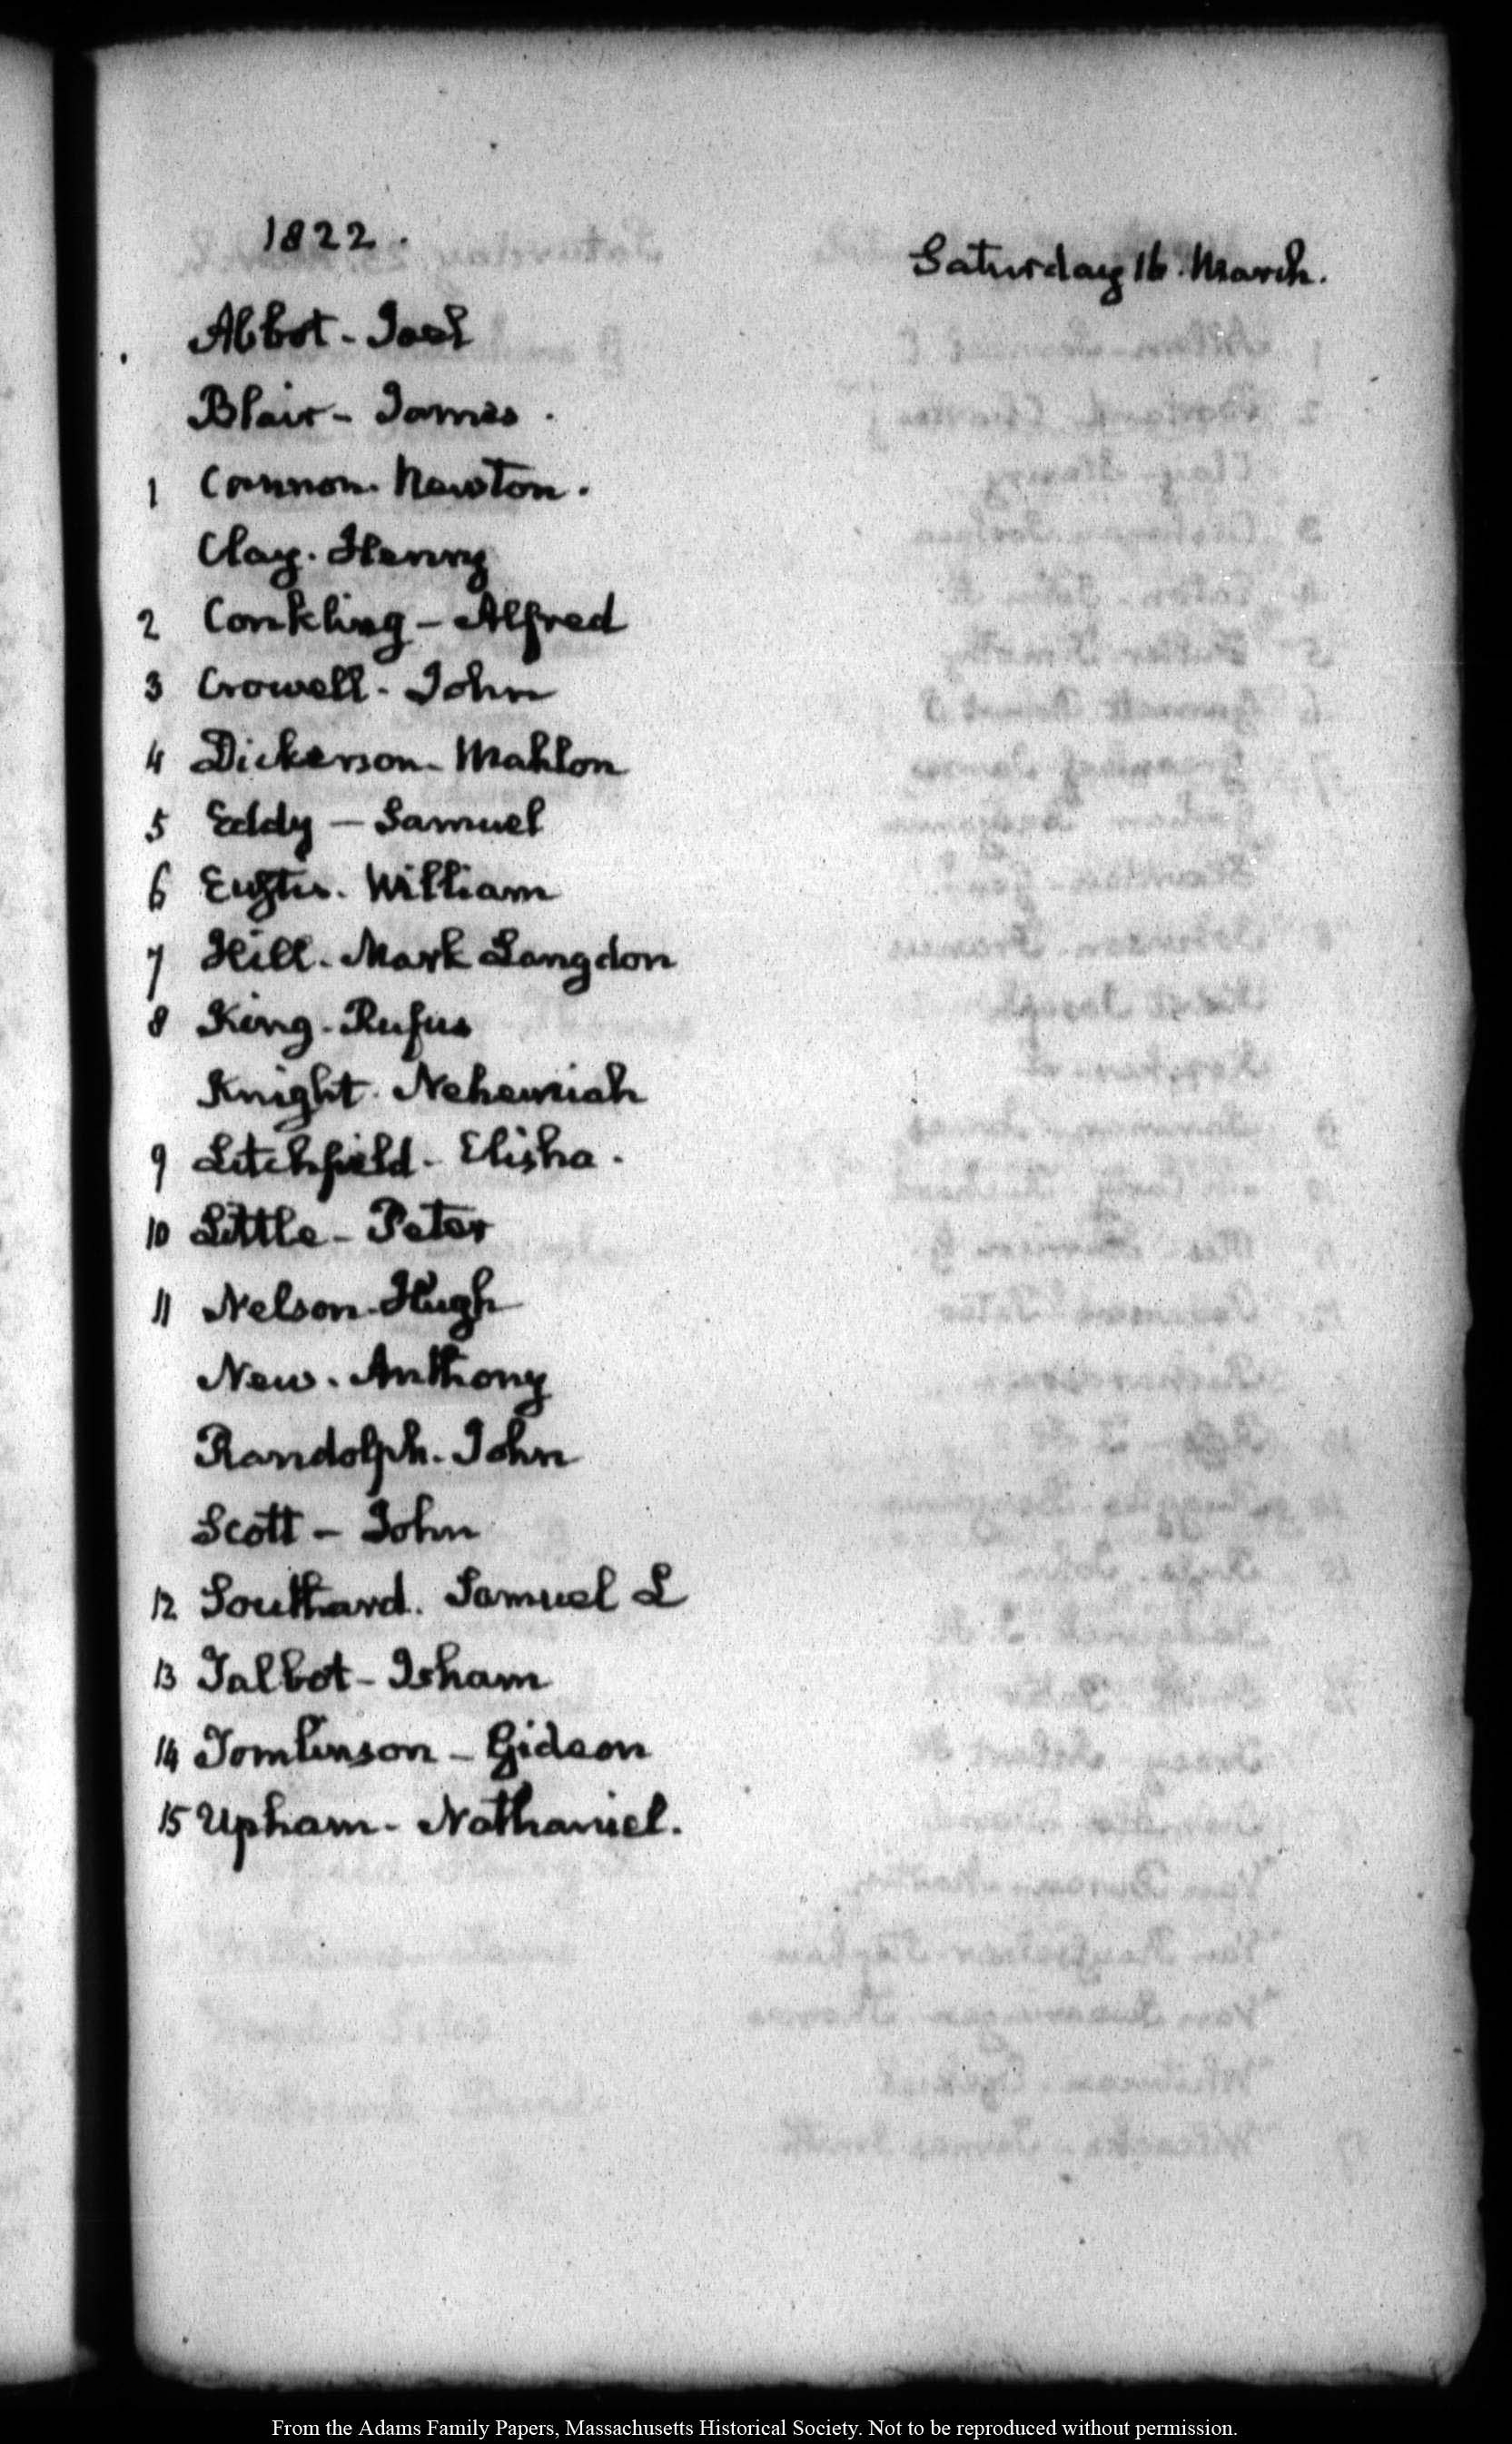 1822.
Saturday 16. March.
Abbot - Joel
Blair - James.
1 Cannon. Newton.
Clay. Henry
2 Conkling - Alfred
3 Crowell - John
4 Dickerson - Mahlon
5 Eddy - Samuel
6 Eustis. William
7 Hill. Mark Langdon
8 King - Rufus
Knight. Nehemiah
9 Litchfield - Elisha.
10 Little - Peter
11 Nelson - Hugh
New. Anthony
Randolph. John
Scott - John
12 Southard. Samuel L
13 Talbot - Isham
14 Tomlinson - Gideon
15 Upham - Nathaniel.
From the Adams Family Papers, Massachusetts Historical Society. Not to be reproduced without permission.